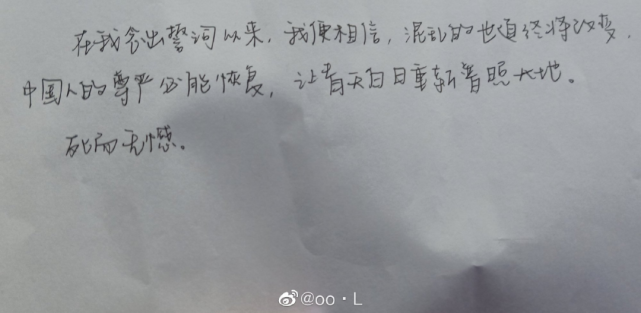 在我念出誓词以来，我便相信，混乱的世道终将改变，
中国人的尊严必能恢复，让青天白日重新普照大地。
死而无憾。
@oo·L